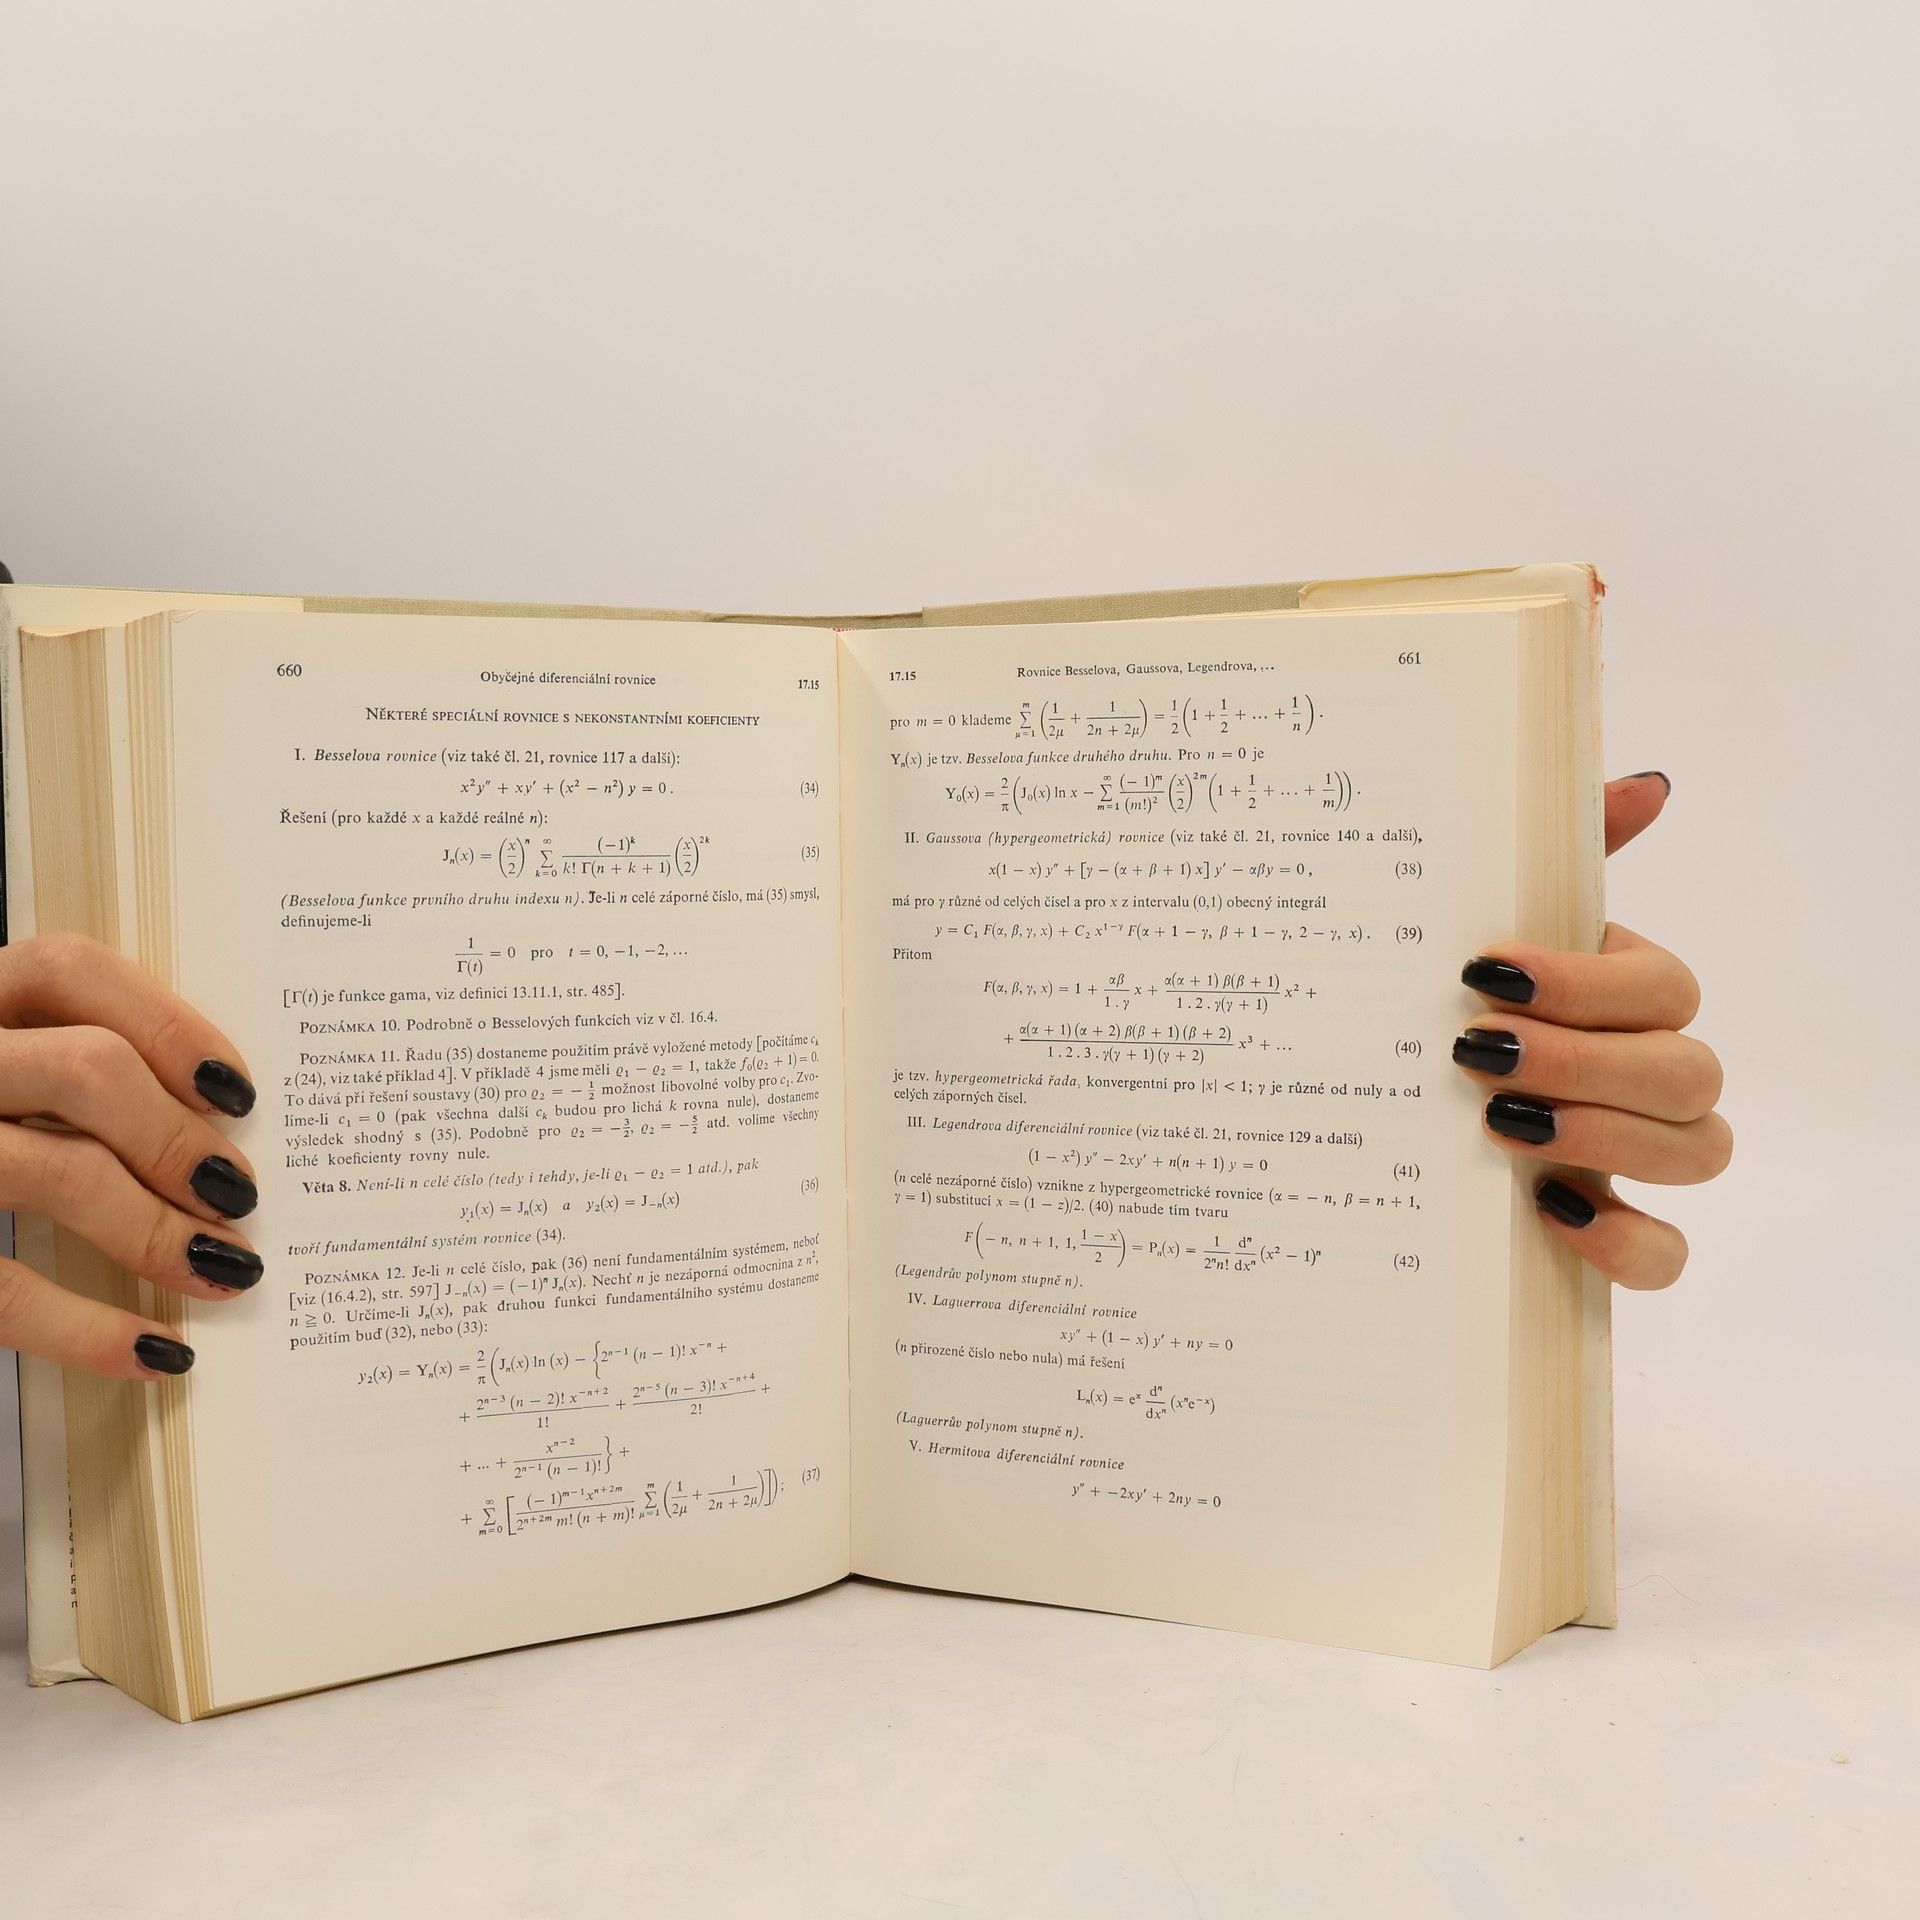 660 Obyčejné diferenciální rovnice 17.15
NĚKTERÉ SPECIÁLNÍ ROVNICE S NEKONSTANTNÍMI KOEFICIENTY
I. Besselova rovnice (viz také čl. 21, rovnice 117 a další):
x²y″ + xy′ + (x² − n²) y = 0 . (34)
Řešení (pro každé x a každé reálné n):
Jₙ(x) = (x/2)ⁿ ∑_{k=0}^{∞} (−1)ᵏ / (k! Γ(n + k + 1)) (x/2)²ᵏ (35)
(Besselova funkce prvního druhu indexu n). Je-li n celé záporné číslo, má (35) smysl,
definujeme-li
1/Γ(t) = 0 pro t = 0, −1, −2, ...
[Γ(t) je funkce gama, viz definici 13.11.1, str. 485].
POZNÁMKA 10. Podrobně o Besselových funkcích viz v čl. 16.4.
POZNÁMKA 11. Řadu (35) dostaneme použitím právě vyložené metody [počítáme cₖ
z (24), viz také příklad 4]. V příkladě 4 jsme měli ϱ₁ − ϱ₂ = 1, takže f₀(ϱ₂ + 1) = 0.
To dává při řešení soustavy (30) pro ϱ₂ = −½ možnost libovolné volby pro c₁. Zvo-
líme-li c₁ = 0 (pak všechna další cₖ budou pro lichá k rovna nule), dostaneme
výsledek shodný s (35). Podobně pro ϱ₂ = −3/2, ϱ₂ = −5/2 atd. volíme všechny
liché koeficienty rovny nule.
Věta 8. Není-li n celé číslo (tedy i tehdy, je-li ϱ₁ − ϱ₂ = 1 atd.), pak
y₁(x) = Jₙ(x) a y₂(x) = J₋ₙ(x) (36)
tvoří fundamentální systém rovnice (34).
POZNÁMKA 12. Je-li n celé číslo, pak (36) není fundamentálním systémem, neboť
[viz (16.4.2), str. 597] J₋ₙ(x) = (−1)ⁿ Jₙ(x). Nechť n je nezáporná odmocnina z n²,
n ≧ 0. Určíme-li Jₙ(x), pak druhou funkci fundamentálního systému dostaneme
použitím buď (32), nebo (33):
y₂(x) = Yₙ(x) = 2/π (Jₙ(x) ln (x) − {2ⁿ⁻¹ (n − 1)! x⁻ⁿ +
+ 2ⁿ⁻³ (n − 2)! x⁻ⁿ⁺² / 1! + 2ⁿ⁻⁵ (n − 3)! x⁻ⁿ⁺⁴ / 2! +
+ ... + xⁿ⁻² / (2ⁿ⁻¹ (n − 1)!)} +
+ ∑_{m=0}^{∞} [(−1)ᵐ⁻¹xⁿ⁺²ᵐ / (2ⁿ⁺²ᵐ m! (n + m)!) ∑_{μ=1}^{m} (1/2μ + 1/(2n + 2μ))]); (37)
17.15 Rovnice Besselova, Gaussova, Legendrova, ... 661
pro m = 0 klademe ∑_{μ=1}^{m} (1/2μ + 1/(2n + 2μ)) = 1/2 (1 + 1/2 + ... + 1/n) .
Yₙ(x) je tzv. Besselova funkce druhého druhu. Pro n = 0 je
Y₀(x) = 2/π (J₀(x) ln x − ∑_{m=1}^{∞} (−1)ᵐ/(m!)² (x/2)²ᵐ (1 + 1/2 + ... + 1/m)) .
II. Gaussova (hypergeometrická) rovnice (viz také čl. 21, rovnice 140 a další),
x(1 − x) y″ + [γ − (α + β + 1) x] y′ − αβy = 0 , (38)
má pro γ různé od celých čísel a pro x z intervalu (0,1) obecný integrál
y = C₁ F(α, β, γ, x) + C₂ x¹⁻ᵞ F(α + 1 − γ, β + 1 − γ, 2 − γ, x) . (39)
Přitom
F(α, β, γ, x) = 1 + αβ/(1 . γ) x + α(α + 1) β(β + 1) / (1 . 2 . γ(γ + 1)) x² +
+ α(α + 1) (α + 2) β(β + 1) (β + 2) / (1 . 2 . 3 . γ(γ + 1) (γ + 2)) x³ + ... (40)
je tzv. hypergeometrická řada, konvergentní pro |x| < 1; γ je různé od nuly a od
celých záporných čísel.
III. Legendrova diferenciální rovnice (viz také čl. 21, rovnice 129 a další)
(1 − x²) y″ − 2xy′ + n(n + 1) y = 0 (41)
(n celé nezáporné číslo) vznikne z hypergeometrické rovnice (α = − n, β = n + 1,
γ = 1) substitucí x = (1 − z)/2. (40) nabude tím tvaru
F(− n, n + 1, 1, (1 − x)/2) = Pₙ(x) = 1/(2ⁿn!) dⁿ/dxⁿ (x² − 1)ⁿ (42)
(Legendrův polynom stupně n).
IV. Laguerrova diferenciální rovnice
xy″ + (1 − x) y′ + ny = 0
(n přirozené číslo nebo nula) má řešení
Lₙ(x) = eˣ dⁿ/dxⁿ (xⁿe⁻ˣ)
(Laguerrův polynom stupně n).
V. Hermitova diferenciální rovnice
y″ + −2xy′ + 2ny = 0